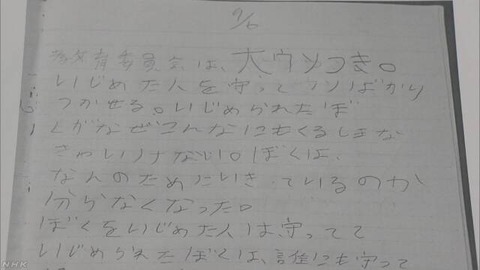 9/6
教育委員会は、大ウソつき。
いじめた人を守ってウソばかり
つかせる。いじめられたぼ
くがなぜこんなにもくるしまな
きゃいけない。ぼくは、
なんのためにいきているのか
分からなくなった。
ぼくをいじめた人は守ってて
いじめられたぼくは、誰にも守って
NHK